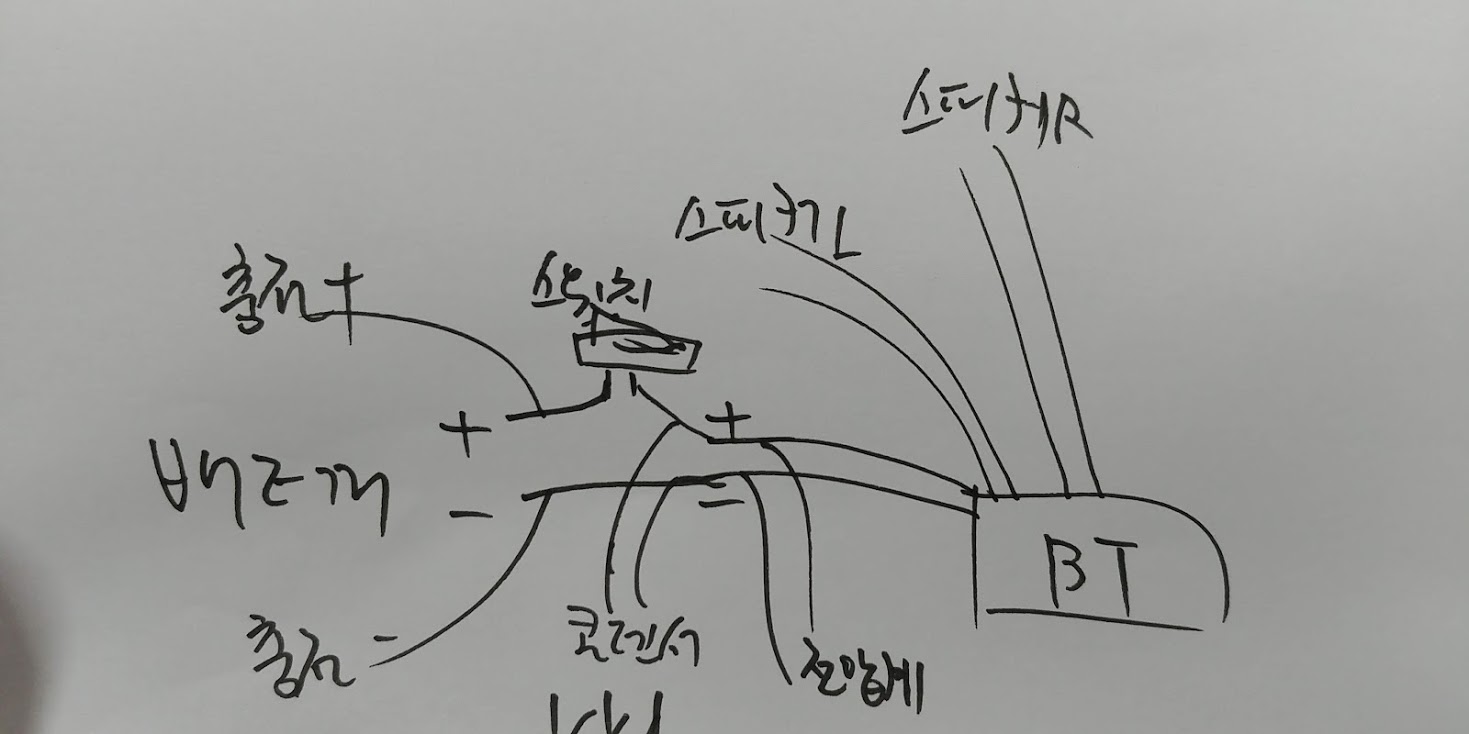 스피커R
스피커L
충전+
스위치
+
+
배터리
-
-
충전 -
콘덴서
전압계
BT